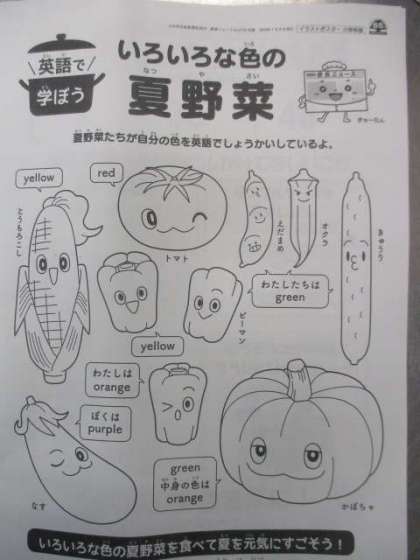 英語で
学ぼう
いろいろな色の
夏野菜
夏野菜たちが自分の色を英語でしょうかいしているよ。
yellow
とうもろこし
red
トマト
えだまめ
オクラ
きゅうり
わたしたちは
green
ピーマン
yellow
わたしは
orange
ぼくは
purple
なす
green
中身の色は
orange
かぼちゃ
いろいろな色の夏野菜を食べて夏を元気にすごそう！